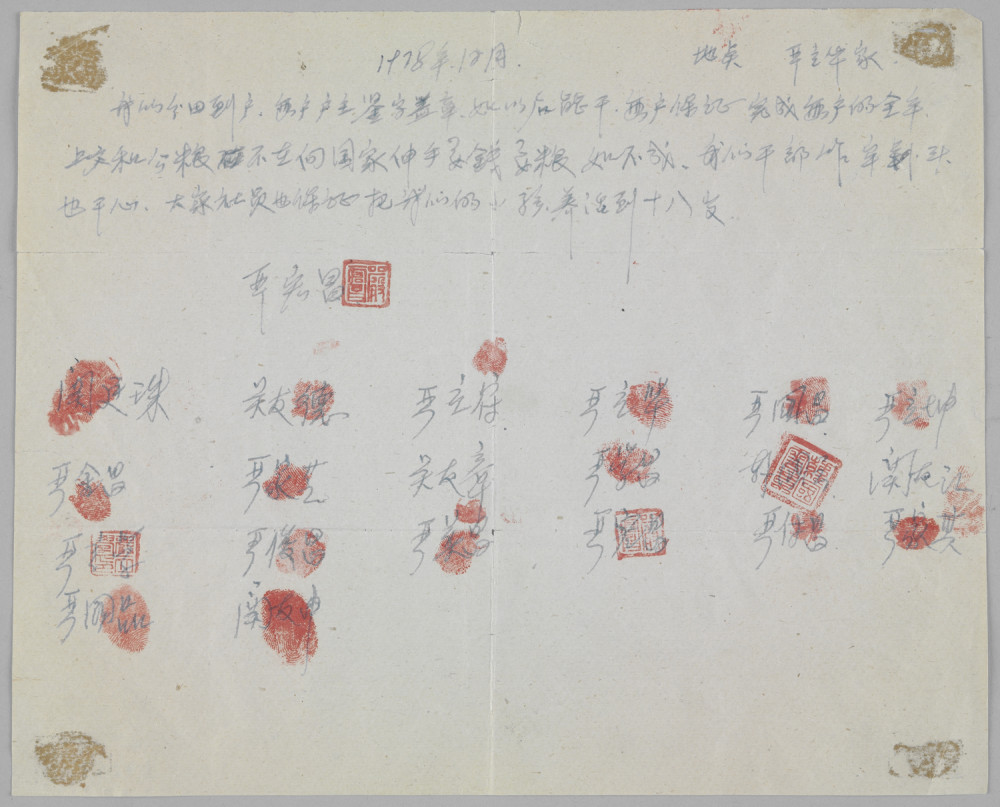 1978年.12月. 地点 严立华家
我们分田到户.每户户主签字盖章.如以后能干.每户保证完成每户的全年.
上交和公粮 不在向国家伸手要錢要粮 如不成.我们干部作牢刹头.
也干心.大家社员也保证把我们的小孩.养活到十八岁.
严宏昌
关廷珠 关友德 严立符 严立华 严国昌 严立坤
严金昌 严家芝 关友章 严学昌 韩 关友江
严 严俊昌 严美昌 严宏昌 严付昌 严家其
严国品 关友申